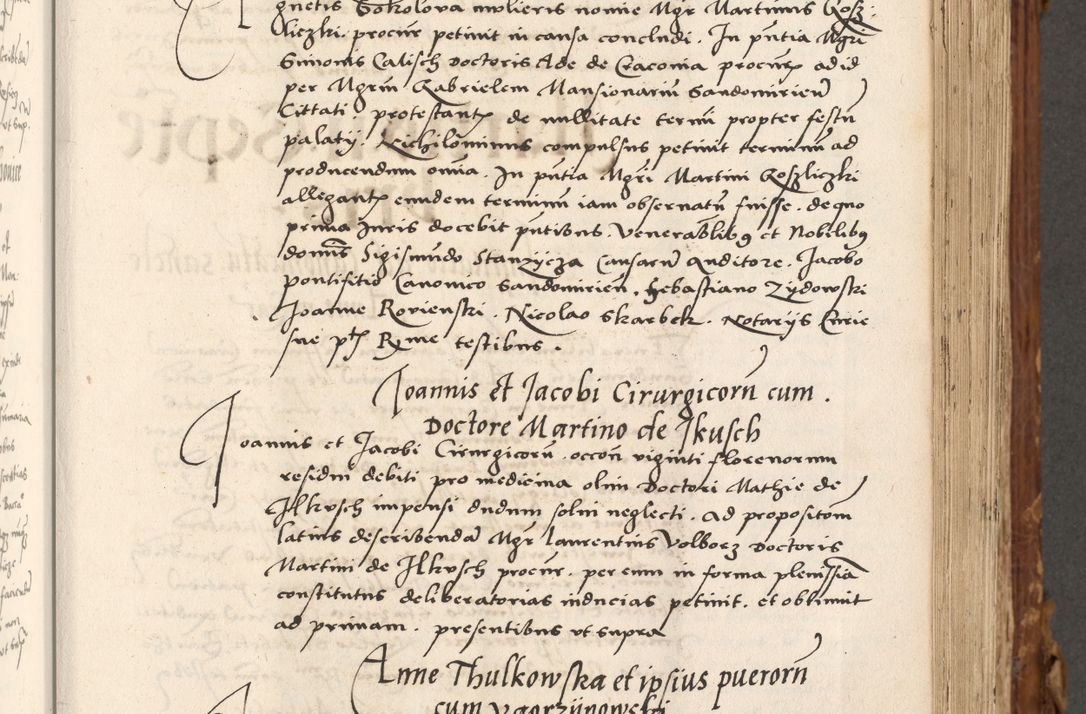 gnetis Sokolova mulieris nomine Mgr Martinus Kosz:
sliczki. procur petiuit in causa concludi. In pntia Mgri
Simonis Calisch Doctoris Ade de Cracouia procur ad id
per Mgrm Gabrielem Mansionariu Sandomirien
Cittati protestant de nullitate termi propter festu
palatij. Nichilominus compulsus petiuit terminu ad
producendum omnia. In pntia Mgri Martini Koszliczki
allegant eundem terminu iam obseruatu fuisse. de quo
prima Juris docebit pntibus Venerablibq et Nobilibq
domis Sigismundo Stanzycza Causaru Auditore. Jacobo
pontifitio Canonico Sandomirien. Sebastiano Zydowski
Joanne Rovienski. Nicolao Skarbek. Notarijs Curie
sue testibus.
Joannis et Jacobi Cirurgicoru cum.
Doctore Martino de Jkusch
Joannis et Jacobi Cirurgicoru. occon viginti florenorum
residui debiti pro medicina olim Doctori Mathie de
Jlkvsch impensi dudum solui neglecti. ad propositom
latius describenda Mgr laurentius Volborz Doctoris
Martini de Jlkvsch procur. per eum in forma plenissia
constitutus deliberatorias inducias petiuit. et obtinuit
ad primam. presentibus vt supra
Anne Thulkowska et ipsius puerorn
cum